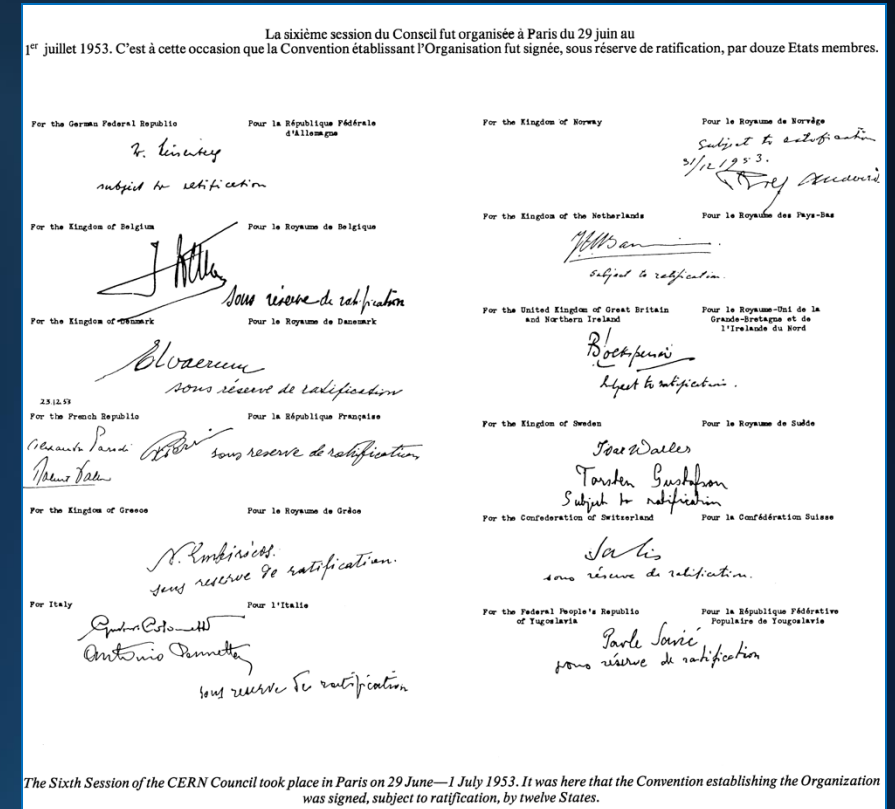 La sixième session du Conseil fut organisée à Paris du 29 juin au
1er juillet 1953. C'est à cette occasion que la Convention établissant l'Organisation fut signée, sous réserve de ratification, par douze Etats membres.
For the German Federal Republic Pour la République Fédérale
d'Allemagne
subject to ratification
For the Kingdom of Belgium Pour le Royaume de Belgique
sous réserve de ratification
For the Kingdom of Denmark Pour le Royaume de Danemark
sous réserve de ratification
23.12.53
For the French Republic Pour la République Française
Alexandre Parodi
sous reserve de ratification
For the Kingdom of Greece Pour le Royaume de Grèce
N. Embiricos.
sous reserve de ratification.
For Italy Pour l'Italie
Antonio
sous reserve de ratification
For the Kingdom of Norway Pour le Royaume de Norvège
Subject to ratification
31/12 1953.
For the Kingdom of the Netherlands Pour le Royaume des Pays-Bas
subject to ratification.
For the United Kingdom of Great Britain Pour le Royaume-Uni de la
and Northern Ireland Grande-Bretagne et de
l'Irelande du Nord
subject to ratification.
For the Kingdom of Sweden Pour le Royaume de Suède
Ivar Waller
Torsten Gustafson
Subject to ratification
For the Confederation of Switzerland Pour la Confédération Suisse
sous réserve de ratification.
For the Federal People's Republic Pour la République Fédérative
of Yugoslavia Populaire de Yougoslavie
Pavle Savić
sous réserve de ratification
The Sixth Session of the CERN Council took place in Paris on 29 June—1 July 1953. It was here that the Convention establishing the Organization
was signed, subject to ratification, by twelve States.